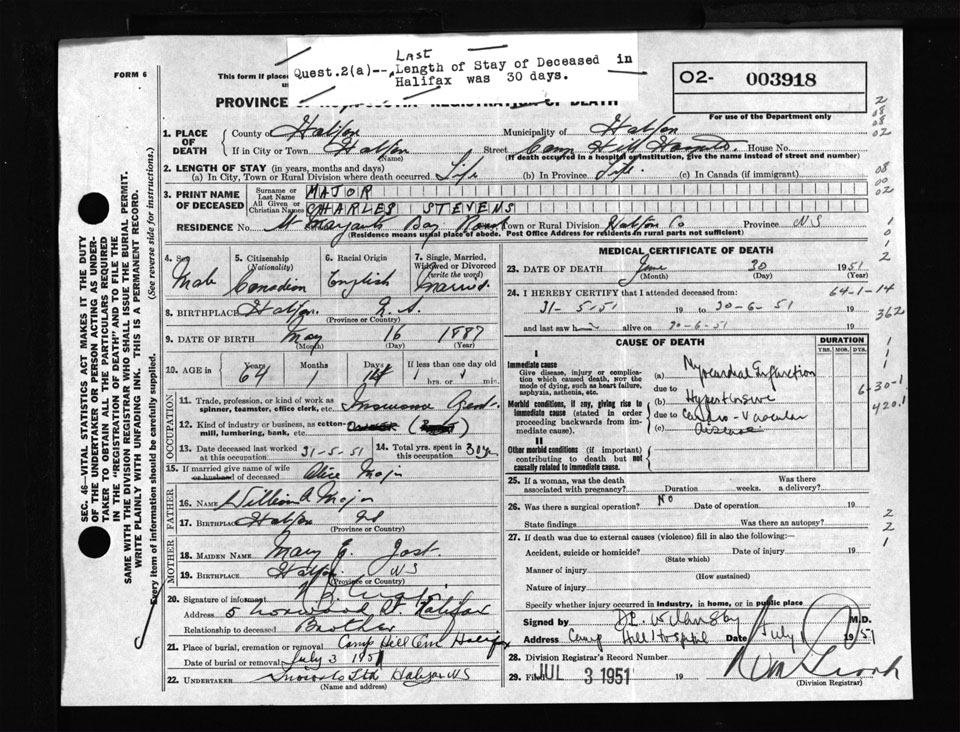 LAST
Quest.2(a)--Length of Stay of Deceased in
Halifax was 30 days.
FORM 6
This form if place
O2- 003918
For use of the Department only
PROVINCE REGISTRATION OF DEATH
1. PLACE OF DEATH
County of Halifax
Municipality of Halifax
If in City or Town Halifax (Name)
Street Camp Hill Hospital. House No.
(If death occurred in a hospital or institution, give the name instead of street and number)
2. LENGTH OF STAY (in years, months and days)
(a) In City, Town or Rural Division where death occurred Life (b) In Province Life. (c) In Canada (if immigrant)
3. PRINT NAME OF DECEASED
Surname or Last Name MAJOR
All Given or Christian Names CHARLES STEVENS
RESIDENCE No. St Margarets Bay Road Town or Rural Division Halifax Co Province NS
(Residence means usual place of abode. Post Office Address for residents in rural parts not sufficient)
4. Sex Male
5. Citizenship (Nationality) Canadian
6. Racial Origin English
7. Single, Married, Widowed or Divorced (write the word) Married.
8. BIRTHPLACE Halifax N.S. (Province or Country)
9. DATE OF BIRTH May 16 1887
(Month) (Day) (Year)
10. AGE in Years Months Days If less than one day old
64 1 14 hrs. or min.
OCCUPATION
11. Trade, profession, or kind of work as spinner, teamster, office clerk, etc. Insurance
12. Kind of industry or business, as cotton-mill, lumbering, bank, etc.
13. Date deceased last worked at this occupation 31-5-51
14. Total yrs. spent in this occupation 30 yrs
15. If married give name of wife or husband of deceased Alice Major
FATHER
16. NAME William A Major
17. BIRTHPLACE Halifax NS
(Province or Country)
MOTHER
18. MAIDEN NAME Mary E. Jost
19. BIRTHPLACE Halifax NS
(Province or Country)
20. Signature of informant
Address 5 St. Halifax
Relationship to deceased Brother
21. Place of burial, cremation or removal Camp Hill Cem Halifax
Date of burial or removal July 3 1951
22. UNDERTAKER Snows Ltd Halifax NS
(Name and address)
MEDICAL CERTIFICATE OF DEATH
23. DATE OF DEATH June 30 1951
(Month) (Day) (Year)
64-1-14
24. I HEREBY CERTIFY that I attended deceased from
31-5-51 19 to 30-6-51 19
and last saw him alive on 30-6-51 19
362
CAUSE OF DEATH
DURATION
YRS. MOS. DYS.
I
Immediate cause
Give disease, injury or complication which caused death, not the mode of dying, such as heart failure, asphyxia, asthenia, etc.
(a) Myocardial Infarction
due to
6-30-1
(b) Hypertensive
420.1
Morbid conditions, if any, giving rise to immediate cause (stated in order proceeding backwards from immediate cause).
due to Cardio-Vascular
(c) Disease
II
Other morbid conditions (if important) contributing to death but not causally related to immediate cause.
25. If a woman, was the death associated with pregnancy? Duration weeks. Was there a delivery?
26. Was there a surgical operation? No Date of operation 19
State findings Was there an autopsy?
27. If death was due to external causes (violence) fill in also the following:—
Accident, suicide or homicide? Date of injury 19
(State which)
Manner of injury
(How sustained)
Nature of injury
Specify whether injury occurred in industry, in home, or in public place
Signed by M.D.
Address Camp Hill Hospital Date July 1951
28. Division Registrar's Record Number
29. Filed JUL 3 1951 19
(Division Registrar)
SEC. 46—VITAL STATISTICS ACT MAKES IT THE DUTY
OF THE UNDERTAKER OR PERSON ACTING AS UNDER-
TAKER TO OBTAIN ALL THE PARTICULARS REQUIRED
IN THE "REGISTRATION OF DEATH" AND TO FILE THE
SAME WITH THE DIVISION REGISTRAR WHO SHALL ISSUE THE BURIAL PERMIT.
WRITE PLAINLY WITH UNFADING INK. THIS IS A PERMANENT RECORD.
Every item of information should be carefully supplied. (See reverse side for instructions.)